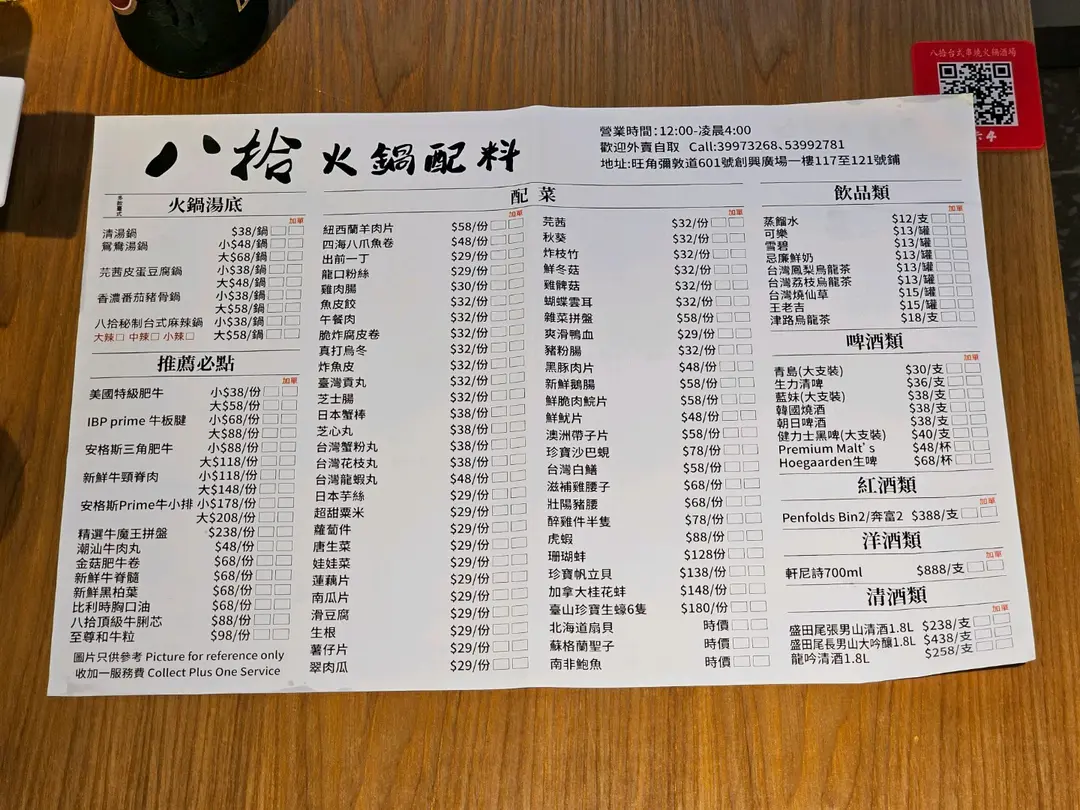 八拾台式串燒火鍋酒場
八拾 火鍋配料
營業時間:12:00-凌晨4:00
歡迎外賣自取 Call:39973268、53992781
地址:旺角彌敦道601號創興廣場一樓117至121號鋪
火鍋湯底
加單
清湯鍋 $38/鍋
鴛鴦湯鍋 小$48/鍋
大$68/鍋
芫茜皮蛋豆腐鍋 小$38/鍋
大$48/鍋
香濃番茄豬骨鍋 小$38/鍋
大$58/鍋
八拾秘制台式麻辣鍋 小$38/鍋
大辣□ 中辣□ 小辣□ 大$58/鍋
推薦必點
加單
美國特級肥牛 小$38/份
大$58/份
IBP prime 牛板腱 小$68/份
大$88/份
安格斯三角肥牛 小$88/份
大$118/份
新鮮牛頸脊肉 小$118/份
大$148/份
安格斯Prime牛小排 小$178/份
大$208/份
精選牛魔王拼盤 $238/份
潮汕牛肉丸 $48/份
金菇肥牛卷 $68/份
新鮮牛脊髓 $68/份
新鮮黑柏葉 $68/份
比利時胸口油 $68/份
八拾頂級牛脷芯 $88/份
至尊和牛粒 $98/份
圖片只供參考 Picture for reference only
收加一服務費 Collect Plus One Service
配菜
加單
紐西蘭羊肉片 $58/份
四海八爪魚卷 $48/份
出前一丁 $29/份
龍口粉絲 $29/份
雞肉腸 $30/份
魚皮餃 $32/份
午餐肉 $32/份
脆炸腐皮卷 $32/份
真打烏冬 $32/份
炸魚皮 $32/份
臺灣貢丸 $32/份
芝士腸 $32/份
日本蟹棒 $38/份
芝心丸 $38/份
台灣蟹粉丸 $38/份
台灣花枝丸 $38/份
台灣龍蝦丸 $48/份
日本芋絲 $29/份
超甜粟米 $29/份
蘿蔔件 $29/份
唐生菜 $29/份
娃娃菜 $29/份
蓮藕片 $29/份
南瓜片 $29/份
滑豆腐 $29/份
生根 $29/份
薯仔片 $29/份
翠肉瓜 $29/份
加單
芫茜 $32/份
秋葵 $32/份
炸枝竹 $32/份
鮮冬菇 $32/份
雞髀菇 $32/份
蝴蝶雲耳 $32/份
雜菜拼盤 $58/份
爽滑鴨血 $29/份
豬粉腸 $32/份
黑豚肉片 $48/份
新鮮鵝腸 $58/份
鮮脆肉鯇片 $58/份
鮮魷片 $48/份
澳洲帶子片 $58/份
珍寶沙巴蜆 $78/份
台灣白鱔 $58/份
滋補雞腰子 $68/份
壯陽豬腰 $68/份
醉雞件半隻 $78/份
虎蝦 $88/份
珊瑚蚌 $128份
珍寶帆立貝 $138/份
加拿大桂花蚌 $148/份
臺山珍寶生蠔6隻 $180/份
北海道扇貝 時價
蘇格蘭聖子 時價
南非鮑魚 時價
飲品類
加單
蒸餾水 $12/支
可樂 $13/罐
雪碧 $13/罐
忌廉鮮奶 $13/罐
台灣鳳梨烏龍茶 $13/罐
台灣荔枝烏龍茶 $13/罐
台灣燒仙草 $15/罐
王老吉 $15/罐
津路烏龍茶 $18/支
啤酒類
加單
青島(大支裝) $30/支
生力清啤 $36/支
藍妹(大支裝) $38/支
韓國燒酒 $38/支
朝日啤酒 $38/支
健力士黑啤(大支裝) $40/支
Premium Malt's $48/杯
Hoegaarden生啤 $68/杯
紅酒類
加單
Penfolds Bin2/奔富2 $388/支
洋酒類
加單
軒尼詩700ml $888/支
清酒類
加單
盛田尾張男山清酒1.8L $238/支
盛田尾長男山大吟釀1.8L $438/支
龍吟清酒1.8L $258/支